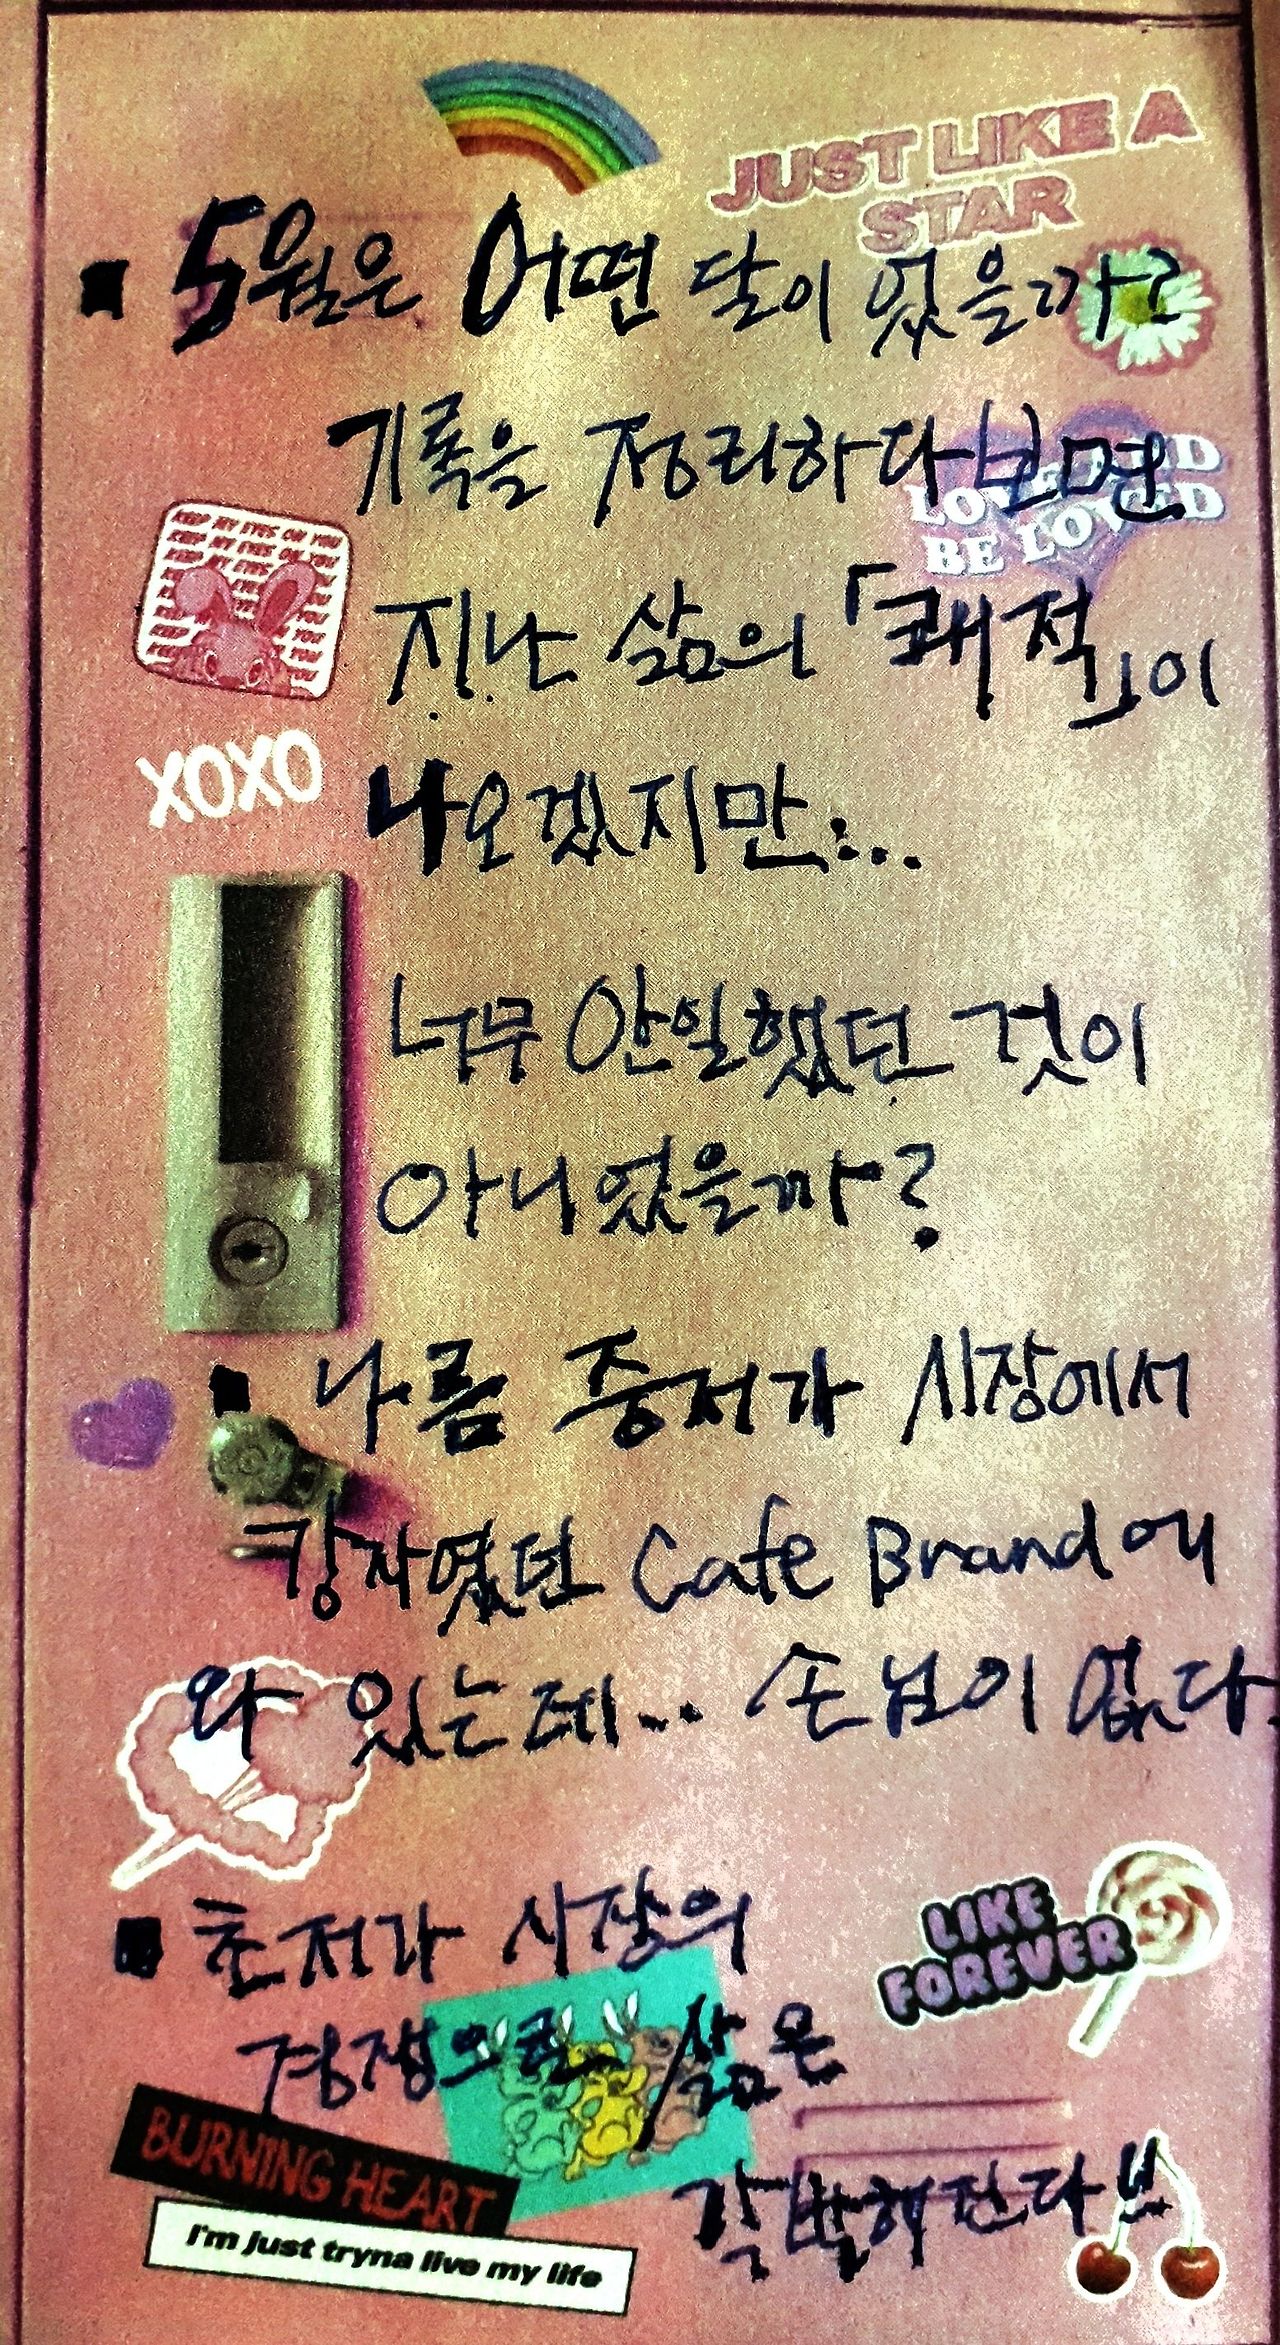 JUST LIKE A
STAR
▪ 5월은 어떤 달이 었을까?
기록을 정리하다보면
LOVE AND
BE LOVED
지난 삶의 「쾌적」이
XOXO
나오겠지만...
너무 안일했던 것이
아니었을까?
▪ 나름 중저가 시장에서
강자였던 Cafe Brand에
와 있는데... 손님이 없다.
▪ 초저가 시장의
LIKE
FOREVER
경쟁으로 삶은
BURNING HEART
각박해진다!!
I'm just tryna live my life